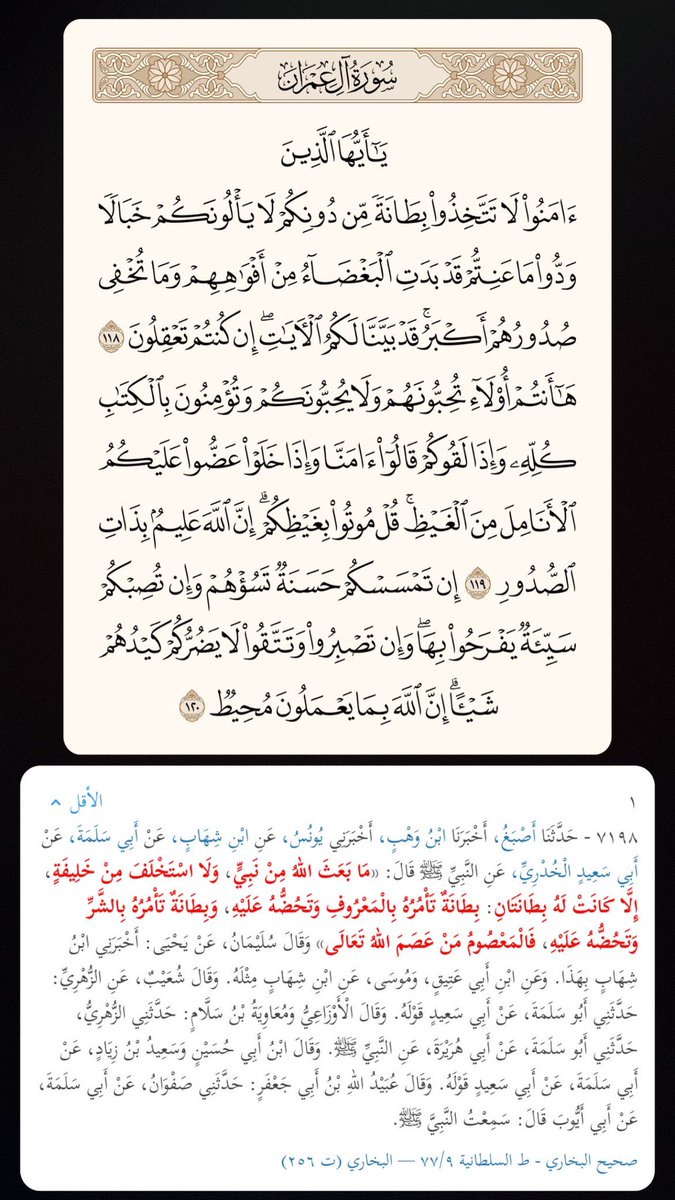 سُورَةُ آلِ عِمْرَانَ
يَـٰٓأَيُّهَا ٱلَّذِينَ
ءَامَنُوا۟ لَا تَتَّخِذُوا۟ بِطَانَةً مِّن دُونِكُمْ لَا يَأْلُونَكُمْ خَبَالًا
وَدُّوا۟ مَا عَنِتُّمْ قَدْ بَدَتِ ٱلْبَغْضَآءُ مِنْ أَفْوَٰهِهِمْ وَمَا تُخْفِى
صُدُورُهُمْ أَكْبَرُ ۚ قَدْ بَيَّنَّا لَكُمُ ٱلْـَٔايَـٰتِ ۖ إِن كُنتُمْ تَعْقِلُونَ ١١٨
هَـٰٓأَنتُمْ أُو۟لَآءِ تُحِبُّونَهُمْ وَلَا يُحِبُّونَكُمْ وَتُؤْمِنُونَ بِٱلْكِتَـٰبِ
كُلِّهِۦ وَإِذَا لَقُوكُمْ قَالُوٓا۟ ءَامَنَّا وَإِذَا خَلَوْا۟ عَضُّوا۟ عَلَيْكُمُ
ٱلْأَنَامِلَ مِنَ ٱلْغَيْظِ ۚ قُلْ مُوتُوا۟ بِغَيْظِكُمْ ۗ إِنَّ ٱللَّهَ عَلِيمٌۢ بِذَاتِ
ٱلصُّدُورِ ١١٩ إِن تَمْسَسْكُمْ حَسَنَةٌ تَسُؤْهُمْ وَإِن تُصِبْكُمْ
سَيِّئَةٌ يَفْرَحُوا۟ بِهَا ۖ وَإِن تَصْبِرُوا۟ وَتَتَّقُوا۟ لَا يَضُرُّكُمْ كَيْدُهُمْ
شَيْـًٔا ۗ إِنَّ ٱللَّهَ بِمَا يَعْمَلُونَ مُحِيطٌ ١٢٠
١ الأقل
٧١٩٨ - حَدَّثَنَا أَصْبَغُ، أَخْبَرَنَا ابْنُ وَهْبٍ، أَخْبَرَنِي يُونُسُ، عَنِ ابْنِ شِهَابٍ، عَنْ أَبِي سَلَمَةَ، عَنْ
أَبِي سَعِيدٍ الْخُدْرِيِّ، عَنِ النَّبِيِّ ﷺ قَالَ: «مَا بَعَثَ اللهُ مِنْ نَبِيٍّ، وَلَا اسْتَخْلَفَ مِنْ خَلِيفَةٍ،
إِلَّا كَانَتْ لَهُ بِطَانَتَانِ: بِطَانَةٌ تَأْمُرُهُ بِالْمَعْرُوفِ وَتَحُضُّهُ عَلَيْهِ، وَبِطَانَةٌ تَأْمُرُهُ بِالشَّرِّ
وَتَحُضُّهُ عَلَيْهِ، فَالْمَعْصُومُ مَنْ عَصَمَ اللهُ تَعَالَى» وَقَالَ سُلَيْمَانُ، عَنْ يَحْيَى: أَخْبَرَنِي ابْنُ
شِهَابٍ بِهَذَا. وَعَنِ ابْنِ أَبِي عَتِيقٍ، وَمُوسَى، عَنِ ابْنِ شِهَابٍ مِثْلَهُ. وَقَالَ شُعَيْبٌ، عَنِ الزُّهْرِيِّ:
حَدَّثَنِي أَبُو سَلَمَةَ، عَنْ أَبِي سَعِيدٍ قَوْلَهُ. وَقَالَ الْأَوْزَاعِيُّ وَمُعَاوِيَةُ بْنُ سَلَّامٍ: حَدَّثَنِي الزُّهْرِيُّ،
حَدَّثَنِي أَبُو سَلَمَةَ، عَنْ أَبِي هُرَيْرَةَ، عَنِ النَّبِيِّ ﷺ. وَقَالَ ابْنُ أَبِي حُسَيْنٍ وَسَعِيدُ بْنُ زِيَادٍ، عَنْ
أَبِي سَلَمَةَ، عَنْ أَبِي سَعِيدٍ قَوْلَهُ. وَقَالَ عُبَيْدُ اللهِ بْنُ أَبِي جَعْفَرٍ: حَدَّثَنِي صَفْوَانُ، عَنْ أَبِي سَلَمَةَ،
عَنْ أَبِي أَيُّوبَ قَالَ: سَمِعْتُ النَّبِيَّ ﷺ.
صحيح البخاري - ط السلطانية ٩/٧٧ — البخاري (ت ٢٥٦)